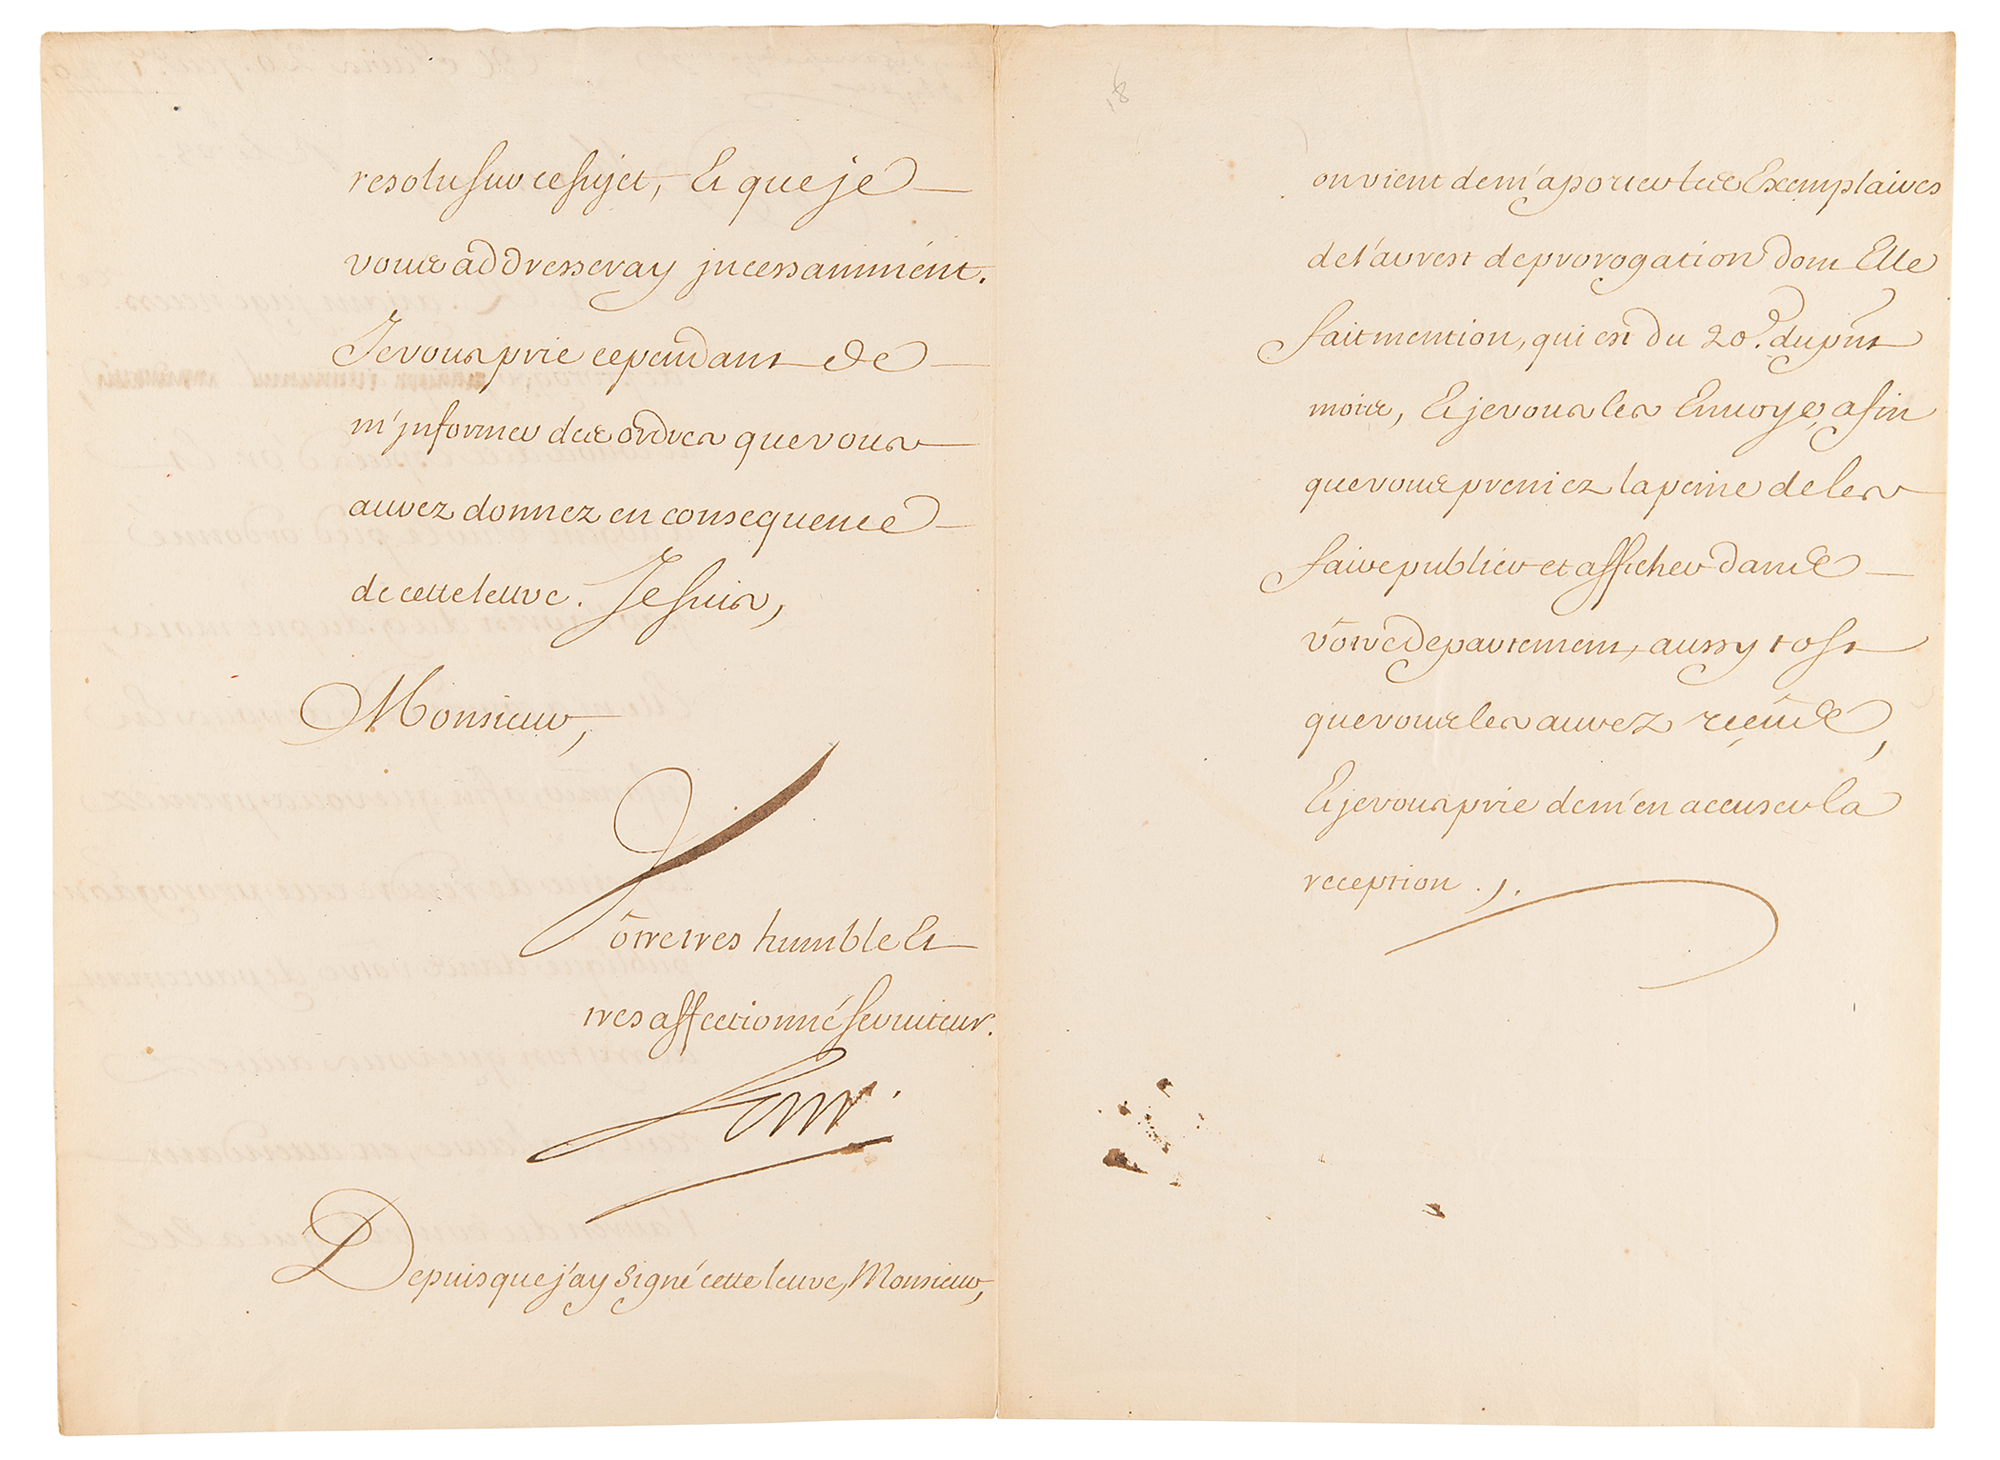 resolu sur ce sujet, Et que je
vous addresseray jncessamment.
Je vous prie cependant de
m'jnformer des ordres que vous
aurez donnez en consequence
de cette lettre. Je suis,
Monsieur,
Vôtre tres humble Et
tres affectionné serviteur.
Depuis que j'ay signé cette lettre, Monsieur,
18
on vient de m'aporter les Exemplaires
de l'arrest de prorogation dont Elle
fait mention, qui est du 20.e du pñt
mois, Et je vous les Envoye, afin
que vous preniez la peine de les
faire publier et afficher dans
vôtre departement, aussy tost
que vous les aurez reçûs,
Et je vous prie de m'en accuser la
reception ./.